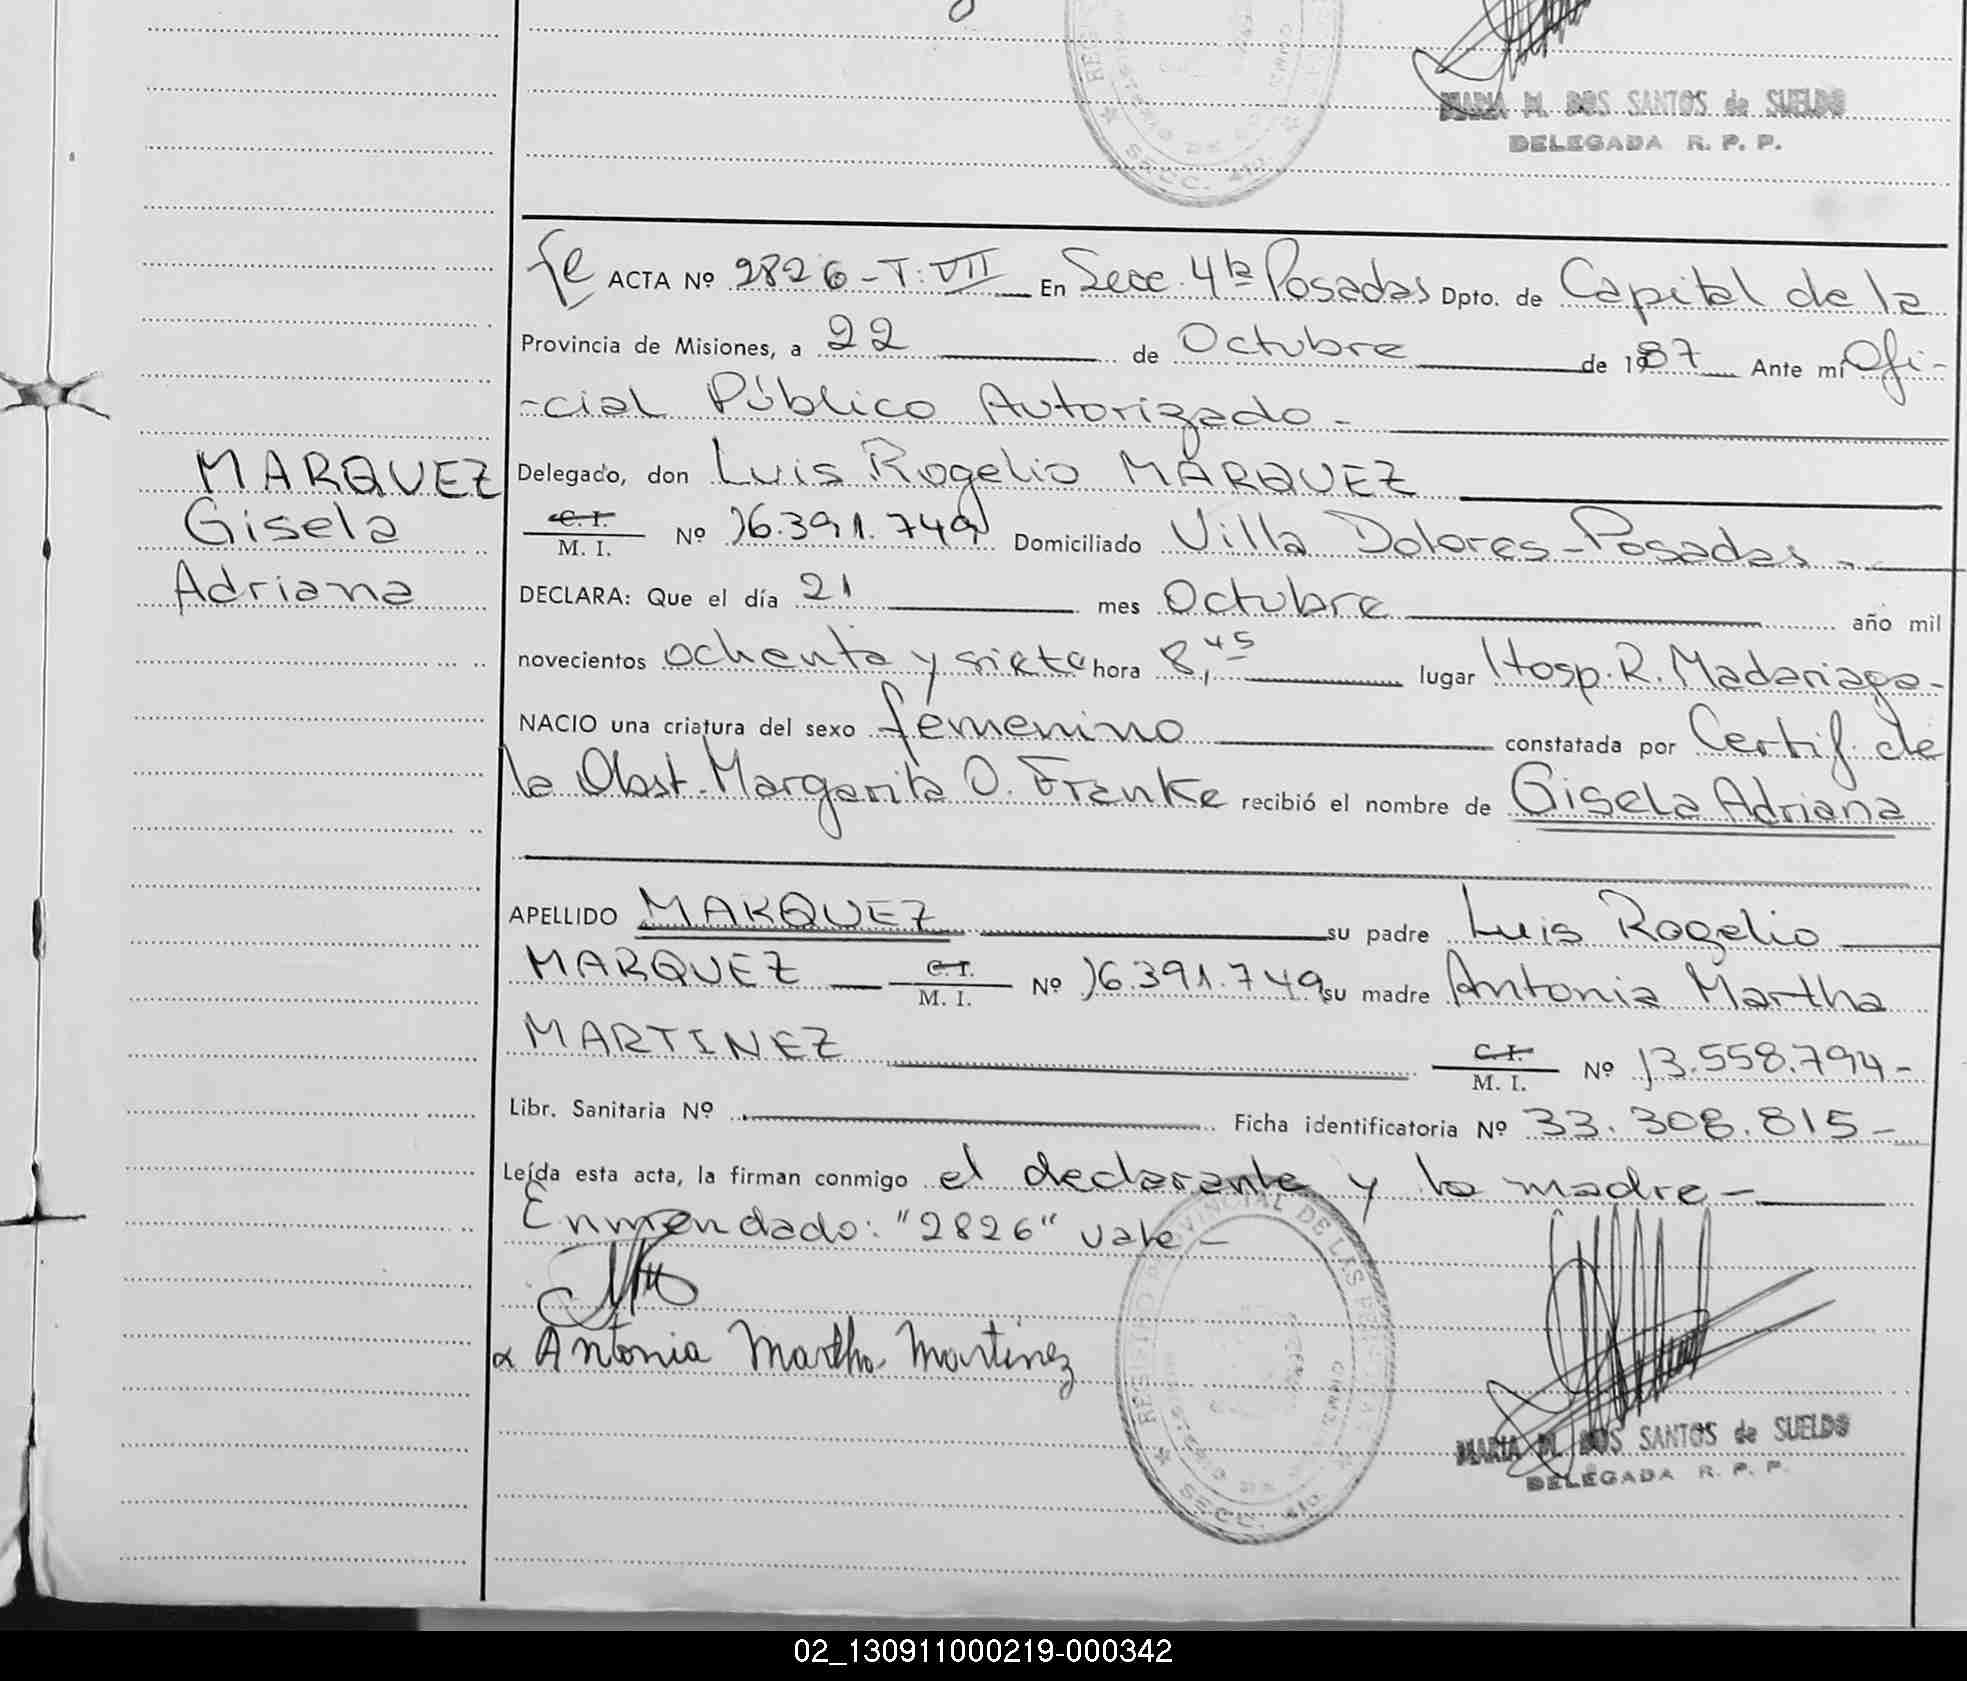 MARIA M. DOS SANTOS de SUELDO
DELEGADA R. P. P.
fe ACTA Nº 2826 - T: VII En Secc. 4ta Posadas Dpto. de Capital de la
Provincia de Misiones, a 22 de Octubre de 1987 Ante mi Ofi-
-cial Público Autorizado -
MARQUEZ
Gisela
Adriana
Delegado, don Luis Rogelio MARQUEZ
C. I. M. I. Nº 16.391.749 Domiciliado Villa Dolores - Posadas -
DECLARA: Que el día 21 mes Octubre año mil
novecientos ochenta y siete hora 8,45 lugar Hosp. R. Madariaga -
NACIO una criatura del sexo femenino constatada por Certif. de
la Obst. Margarita O. Frenke recibió el nombre de Gisela Adriana
APELLIDO MARQUEZ su padre Luis Rogelio
MARQUEZ C. I. M. I. Nº 16.391.749 su madre Antonia Martha
MARTINEZ C. I. M. I. Nº 13.558.794 -
Libr. Sanitaria Nº Ficha identificatoria Nº 33.308.815 -
Leída esta acta, la firman conmigo el declarante y la madre -
Enmendado: "2826" vale -
Antonia Martha Martinez
REGISTRO PROVINCIAL DE LAS PERSONAS
SECC. 4ta.
MARIA M. DOS SANTOS de SUELDO
DELEGADA R. P. P.
02_130911000219-000342